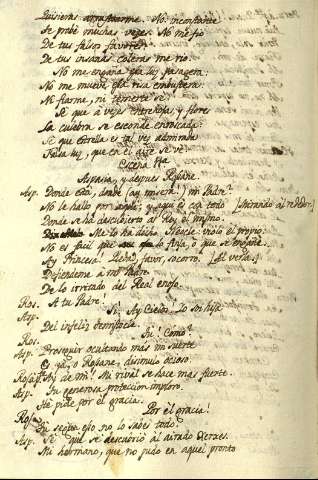 Quisieras arrastrarme. No: inconstante
Te probé muchas vezes. No me fio
De tus falsos favores:
De tus insanas coleras me rio.
No me engaña esa luz pasagera.
No me mueve esa risa embustera
Ni fiarme, ni temerte sé.
Sé que à vezes entre hoja, y flore
La culebra se esconde enroscada:
Sé que estrella es tal vez admirada
Falsa luz, que en el aire se vé.
Escena
Aspasia, y despues Rosane.
Asp. Donde está, donde (ay misera!) mi Padre?
No le hallo por aqui: y aqui es con todo [Mirando al rededor.]
Donde se ha descubierto al Rey el mismo.
Me lo ha dicho Neocle: violo el propio.
No es facil que lo finja, ó que se engañe.
Ay Princesa! Piedad, favor, socorro. [Al verla.]
Defiendeme à mi Padre
De lo irritado del Real enojo.
Ros. A tu Padre!
Asp. Si; Ay Cielos! Yo soy hija
Del infeliz Temistocle.
Ros. Tu! Como?
Asp. Proseguir ocultando más mi suerte
Es ya, o Rosane, disimulo ocioso.
Ros. Ay de mi! Mi rival se hace mas fuerte.
Asp. Tu generosa proteccion imploro.
He pide por él gracia.
Ros. Por él gracia!
Tu segun eso no lo sabes todo?
Asp. Sé que se descubrió al airado Xerxes.
Mi hermano, que no pudo en aquel pronto